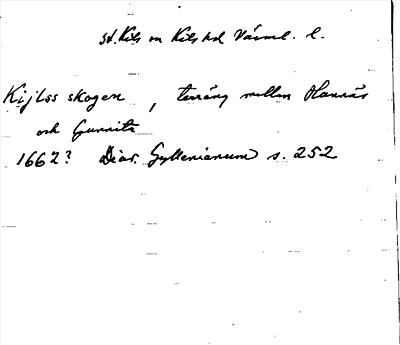 St. Kils sn Kils hd Värml. l.
Kijlss skogen , terräng mellan Hannäs
och Gunnita
1662? Diar. Gyllenianum s. 252